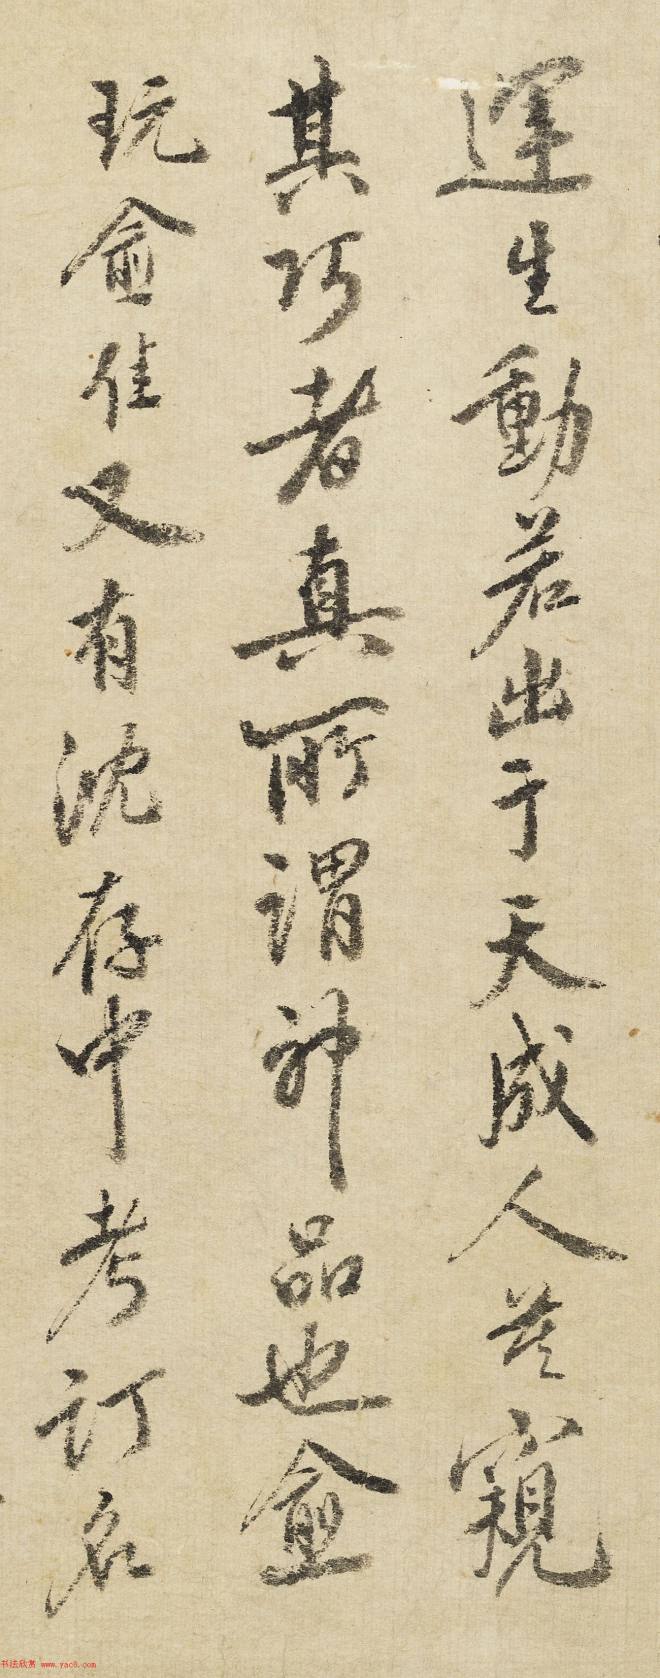 運生動若出于天成人莫窺
其巧者真所謂神品也僉
玩僉佳又有沈存中考訂名
书法欣赏 www.yac8.com